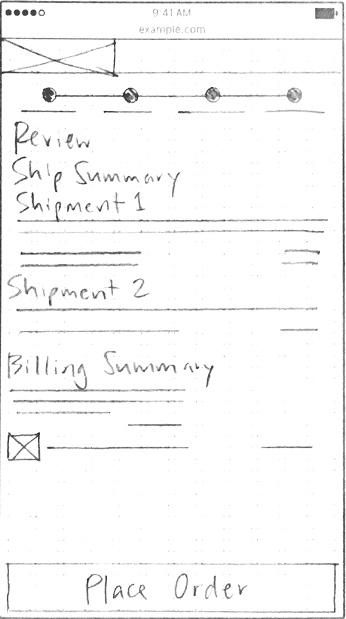 9:41 AM
example.com
Review
Ship Summary
Shipment 1
Shipment 2
Billing Summary
Place Order